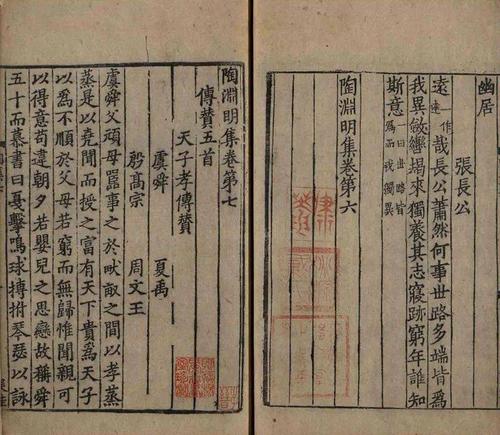 幽居
張長公
遠一作達哉長公蕭然何事世路多端皆爲
我異斂轡朅來獨養其志寢跡窮年誰知
斯意一曰世路皆爲而我獨異
陶淵明集卷第六
陶淵明集卷第七
傳贊五首
天子孝傳贊
虞舜 夏禹
殷高宗 周文王
虞舜父頑母嚚事之於畎畝之間以孝蒸
蒸是以堯聞而授之富有天下貴爲天子
以爲不順於父母若窮而無歸惟聞親可
以得意苟違朝夕若嬰兒之思戀故稱舜
五十而慕書曰戞擊鳴球搏拊琴瑟以詠